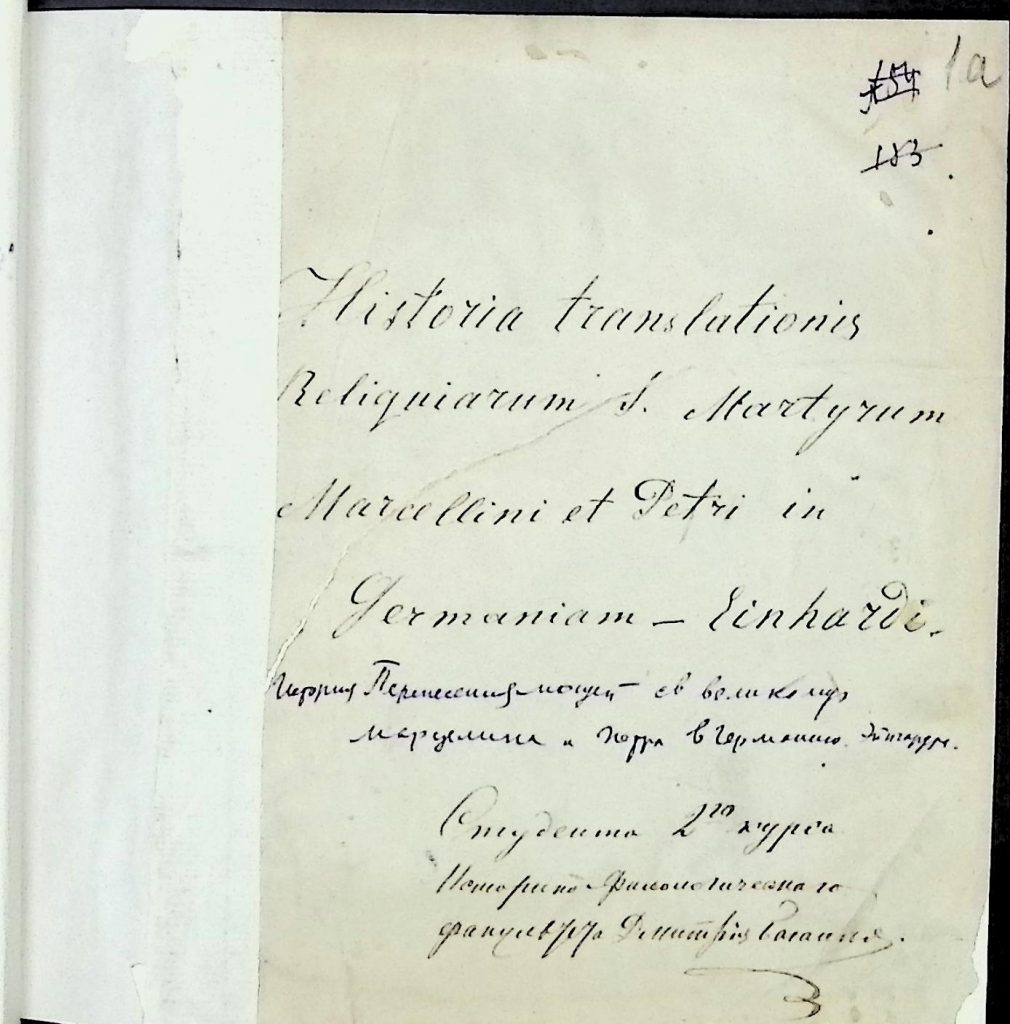 1а
154
183
Historia translationis
Reliquiarum S. Martyrum
Marcellini et Petri in
Germaniam – Einhardi.
История Перенесения мощей св великомуч
Марцелина и Петра в Германию. Эйнгарда.
Студента 2го курса
Историко-Филологическаго
факультета Дмитрія